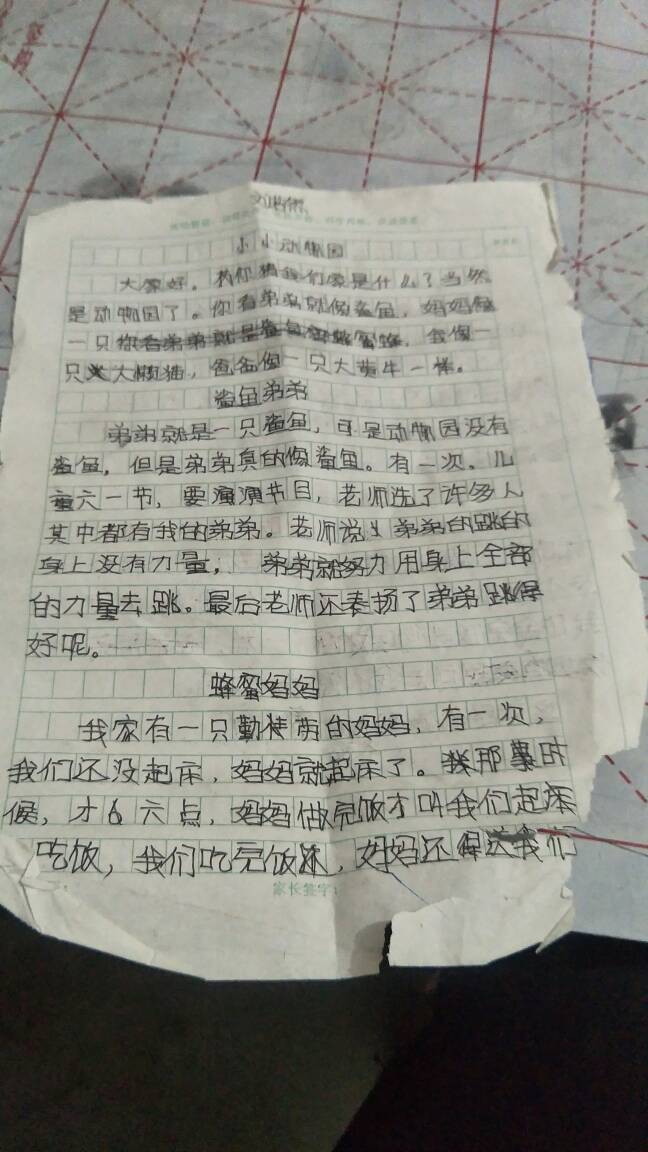 小小动物园
大家好。你猜我们家是什么？当然
是动物园了。你看弟弟就像鲨鱼，妈妈像
一只蜜蜂，我像一
只大懒猫，爸爸像一只大黄牛一样。
鲨鱼弟弟
弟弟就是一只鲨鱼，可是动物园没有
鲨鱼，但是弟弟真的像鲨鱼。有一次，儿
童六一节，要演演节目，老师选了许多人
其中都有我的弟弟。老师说弟弟的跳的
身上没有力量，弟弟就努力用身上全部
的力量去跳。最后老师还表扬了弟弟跳得
好呢。
蜂蜜妈妈
我家有一只勤劳的妈妈，有一次，
我们还没起床，妈妈就起床了。那
候，才六点，妈妈做完饭才叫我们起床
吃饭，我们吃完饭，妈妈还得送我们
家长签字：